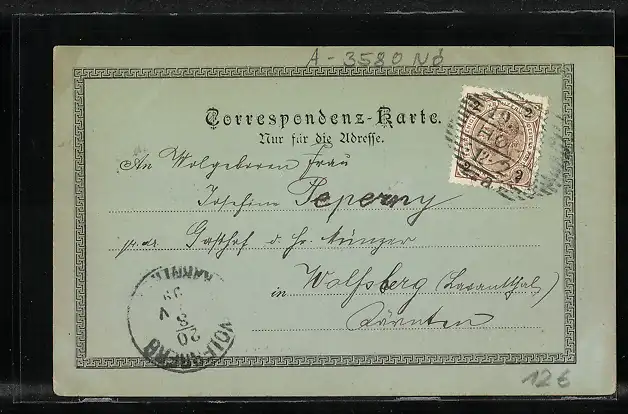 A-3580 NÖ
Correspondenz-Karte.
Nur für die Adresse.
An Wolgeboren Frau
Josefine Peperny
Gasthof d. Hr. Münzer
in Wolfsberg (Lavanthal)
Kärnten
2
2
WOLFSBERG
20
8 V
KÄRNTEN
12€